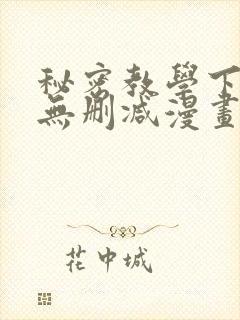 秘密教學下
無刪減漫畫
花中城